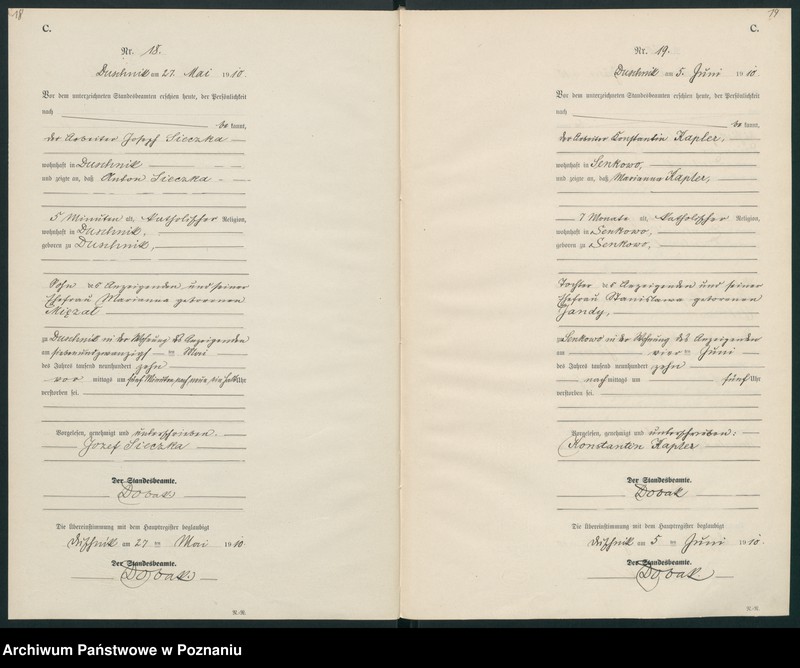 18
C.
Nr. 18.
Duschnik am 27. Mai 1910.
Vor dem unterzeichneten Standesbeamten erschien heute, der Persönlichkeit
nach
be kannt,
der Arbeiter Josef Sieczka
wohnhaft in Duschnik
und zeigte an, daß Anton Sieczka
5 Minuten alt, katholischer Religion,
wohnhaft in Duschnik,
geboren zu Duschnik,
Sohn des Anzeigenden und seiner
Ehefrau Marianna geborenen
zu Duschnik in der Wohnung des Anzeigenden
am siebenundzwanzigsten Mai
des Jahres tausend neunhundert zehn
vor mittags um fünf Minuten nach Uhr
verstorben sei.
Vorgelesen, genehmigt und unterschrieben.
Jozef Sieczka
Der Standesbeamte.
Dobak
Die Übereinstimmung mit dem Hauptregister beglaubigt
Duschnik am 27 ten Mai 1910.
Der Standesbeamte.
Dobak
R.-R.
19
C.
Nr. 19.
Duschnik am 5. Juni 1910.
Vor dem unterzeichneten Standesbeamten erschien heute, der Persönlichkeit
nach
be kannt,
der Arbeiter Konstantin Kapler,
wohnhaft in Senkowo,
und zeigte an, daß Marianna Kapler,
7 Monate alt, katholischer Religion,
wohnhaft in Senkowo,
geboren zu Senkowo,
Tochter des Anzeigenden und seiner
Ehefrau Stanislawa geborenen
Gandy,
zu Senkowo in der Wohnung des Anzeigenden
am vier ten Juni
des Jahres tausend neunhundert zehn
nach mittags um fünf Uhr
verstorben sei.
Vorgelesen, genehmigt und unterschrieben:
Konstantin Kapler
Der Standesbeamte.
Dobak
Die Übereinstimmung mit dem Hauptregister beglaubigt
Duschnik am 5 ten Juni 1910.
Der Standesbeamte.
Dobak
R.-R.
Archiwum Państwowe w Poznaniu